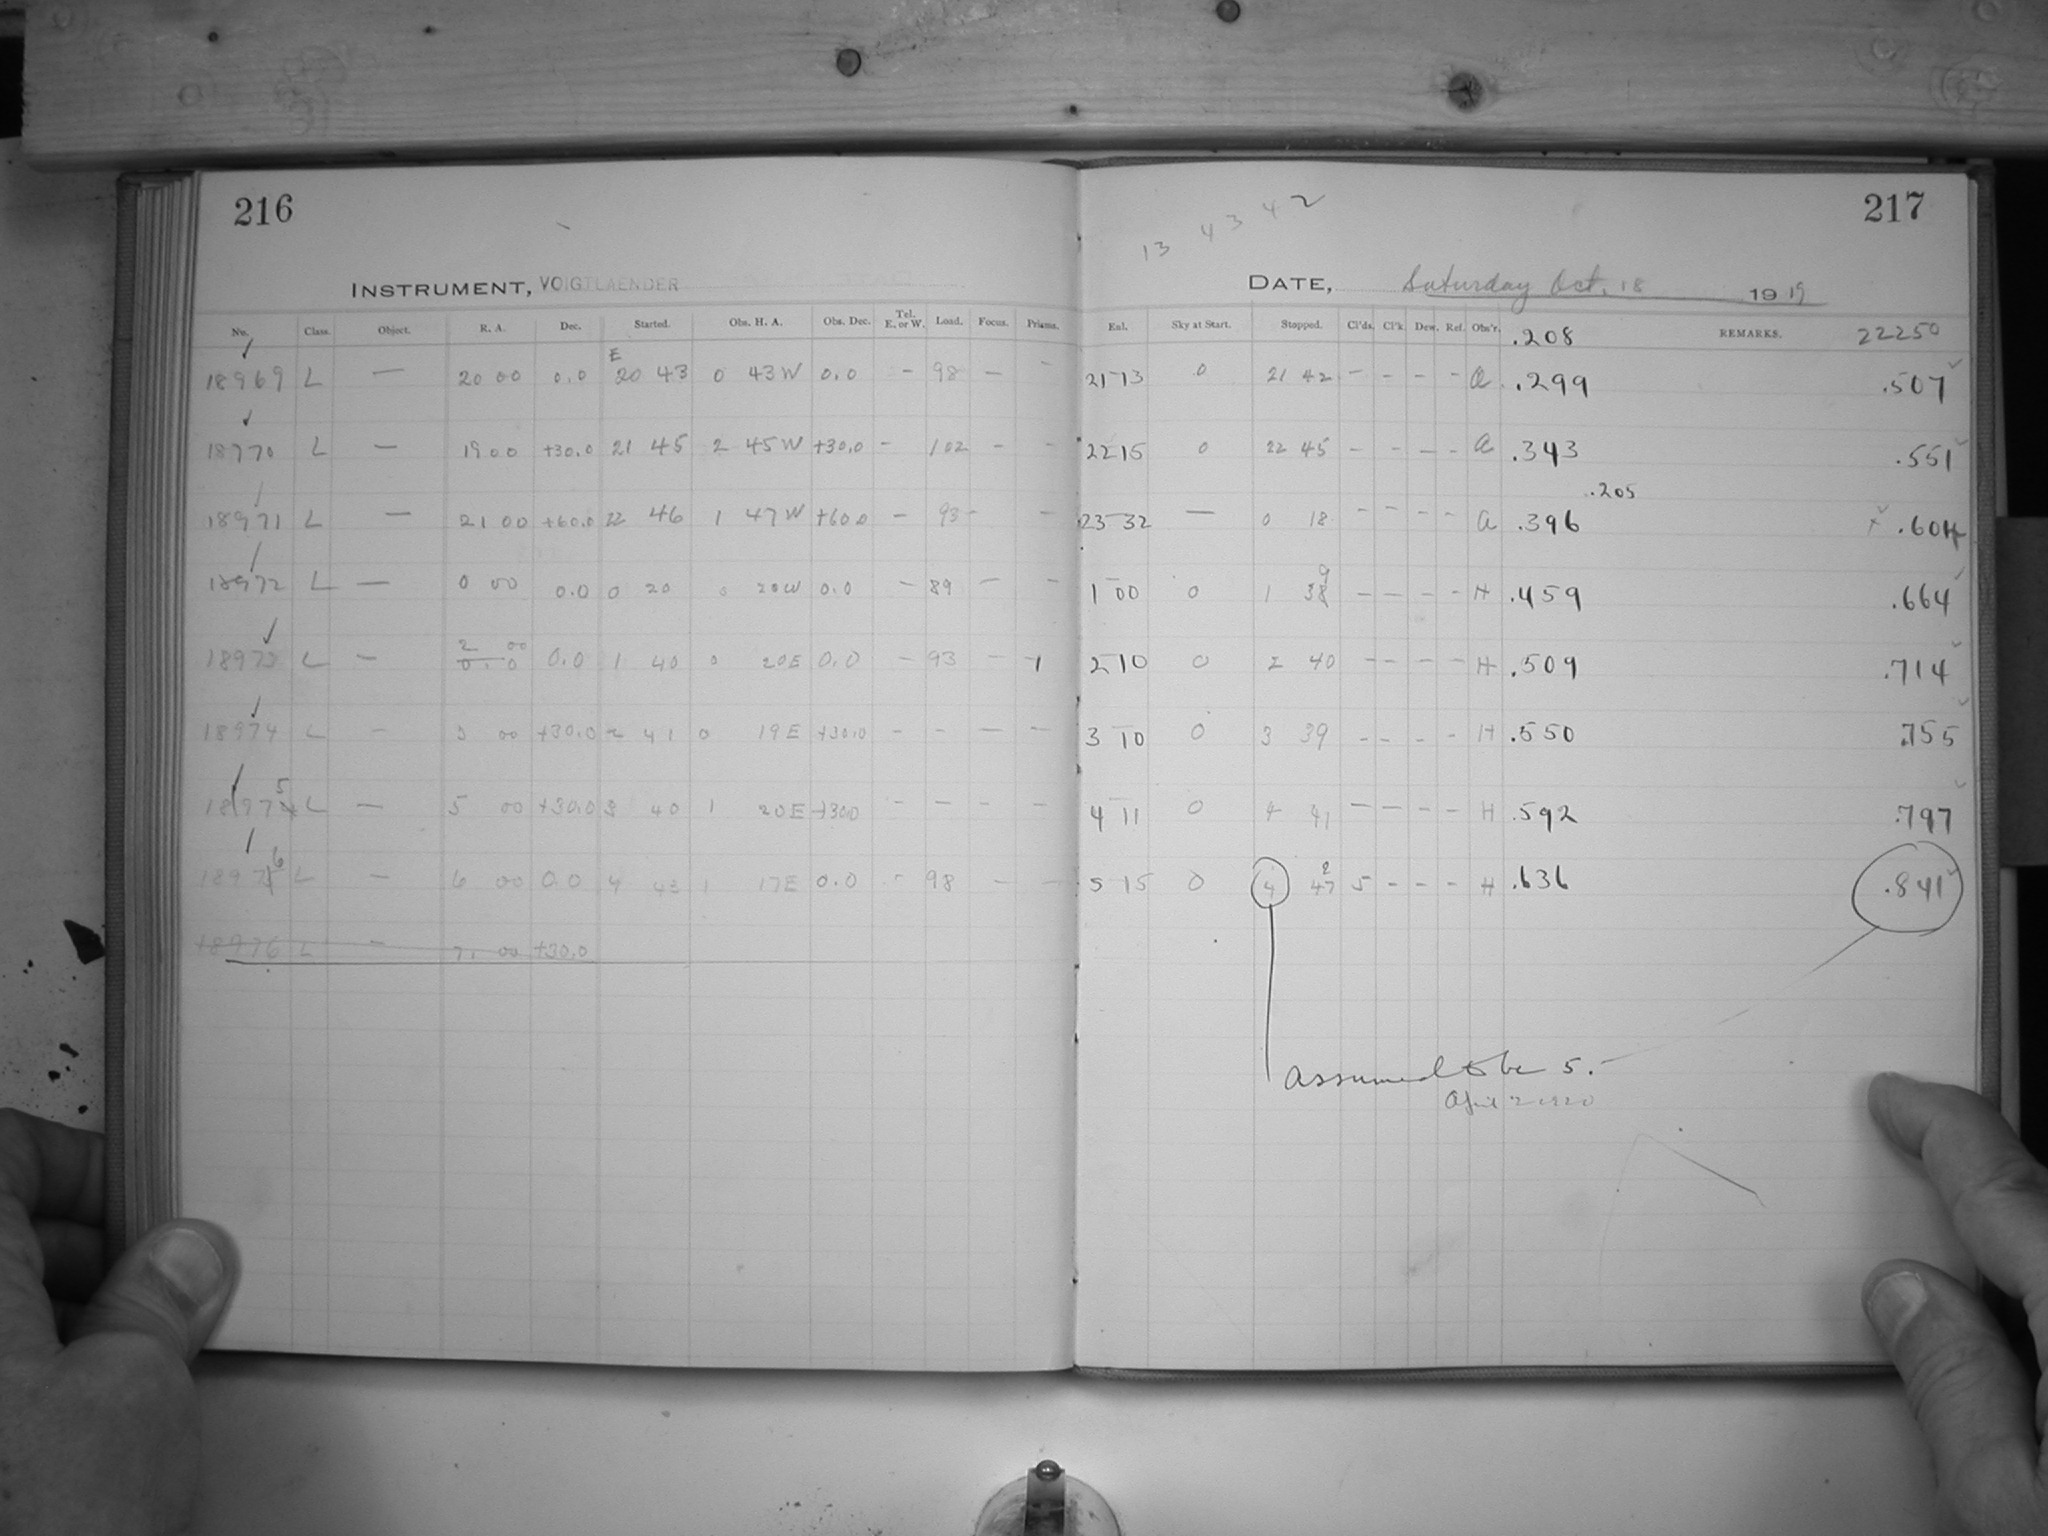 216
INSTRUMENT, VOIGTLAENDER
No. Class. Object. R. A. Dec. Started. Obs. H. A. Obs. Dec. Tel. E. or W. Load. Focus. Prisms.
18969 L — 20 00 0.0 E 20 43 0 43 W 0.0 - 98 — -
18970 L — 19 00 +30.0 21 45 2 45 W +30.0 - 102 - -
18971 L — 21 00 +60.0 22 46 1 47 W +60.0 - 93 - -
18972 L — 0 00 0.0 0 20 0 20 W 0.0 - 89 — -
18973 L — 2 00 0.0 1 40 0 20 E 0.0 - 93 -
18974 L - 3 00 +30.0 2 41 0 19 E +30.0 - - — -
18975 L — 5 00 +30.0 3 40 1 20 E +30.0 - - - -
18976 L - 6 00 0.0 4 43 1 17 E 0.0 - 98 - -
18976 L - 7 00 +30.0
217
13 43 42
DATE, Saturday Oct. 18 1919
Enl. Sky at Start. Stopped. Cl'ds. Cl'k. Dew. Ref. Obs'r. .208 REMARKS. 22250
21 13 0 21 42 - - - - a .299 .507
22 15 0 22 45 - - - - a .343 .551
.205
23 32 — 0 18 - - - - a .396 .604
1 00 0 1 39 - - - - H .459 .664
2 10 0 2 40 - - - - H .509 .714
3 10 0 3 39 - - - - H .550 .755
4 11 0 4 41 - - - - H .592 .797
5 15 0 4 42 5 - - - H .636 .841
assumed to be 5.
April 2 1920